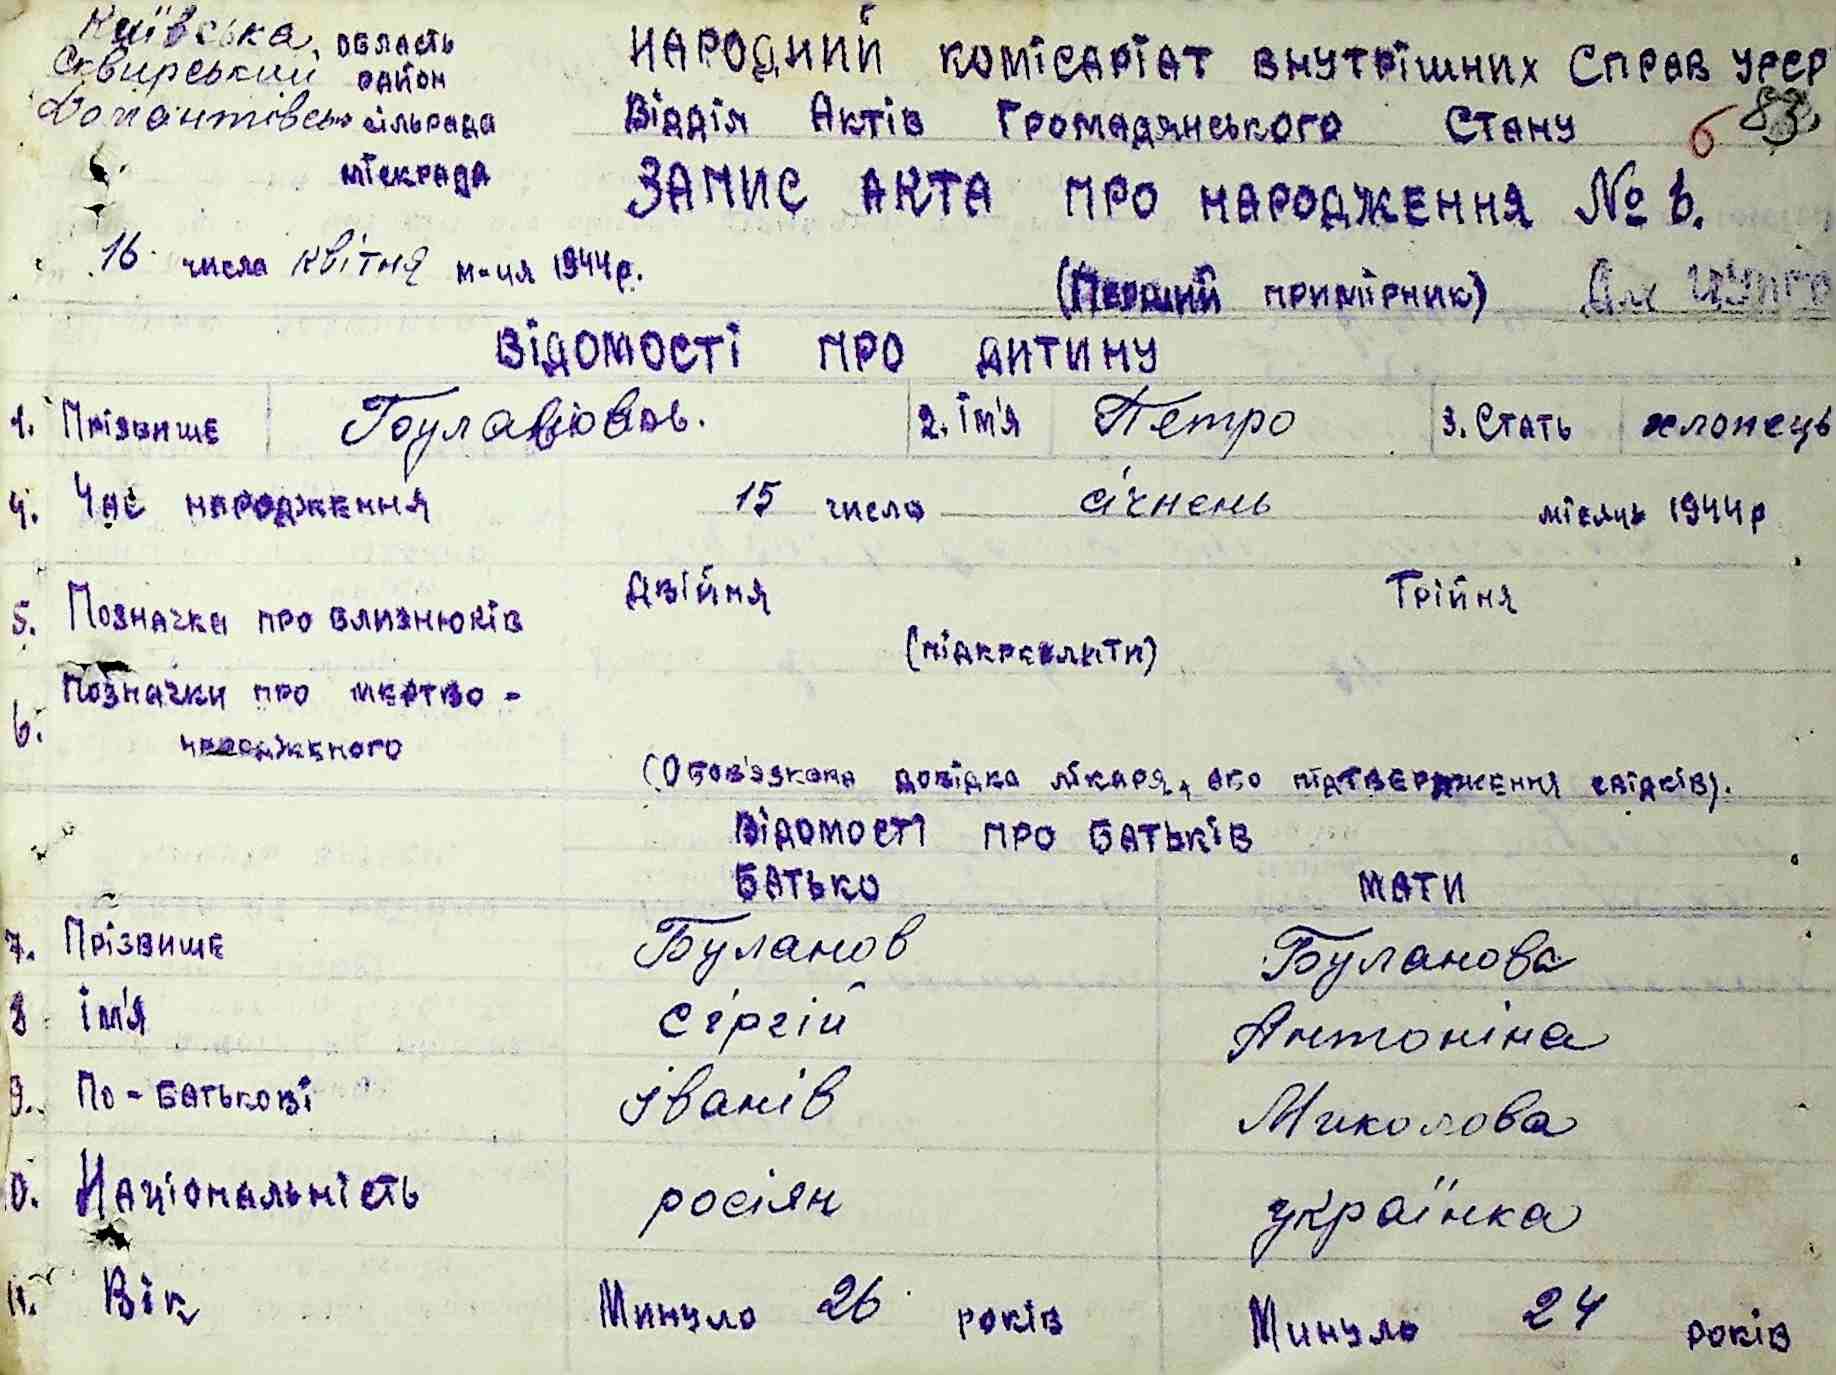 Київська область
Сквирський район
сільрада
міськрада
НАРОДНИЙ КОМІСАРІАТ ВНУТРІШНИХ СПРАВ УРСР
Відділ Актів Громадянського Стану 6 83
ЗАПИС АКТА ПРО НАРОДЖЕННЯ № 6.
16 числа квітня м-ця 1944 р.
(Перший примірник) Для
ВІДОМОСТІ ПРО ДИТИНУ
1. Прізвище 2. Ім'я Петро 3. Стать хлопець
4. Час народження 15 числа січнень місяць 1944 р
5. Позначка про близнюків Двійня Трійня
(підкреслити)
6. Позначки про мертво-
народженого
(Обов'язкова довідка лікаря, або підтвердження свідків).
ВІДОМОСТІ ПРО БАТЬКІВ
БАТЬКО МАТИ
7. Прізвише Буланов Буланова
8 Ім'я Сергій Антоніна
9. По-батькові Іванів Миколова
10. Національність росіян українка
11. Вік Минуло 26 років Минуло 24 років